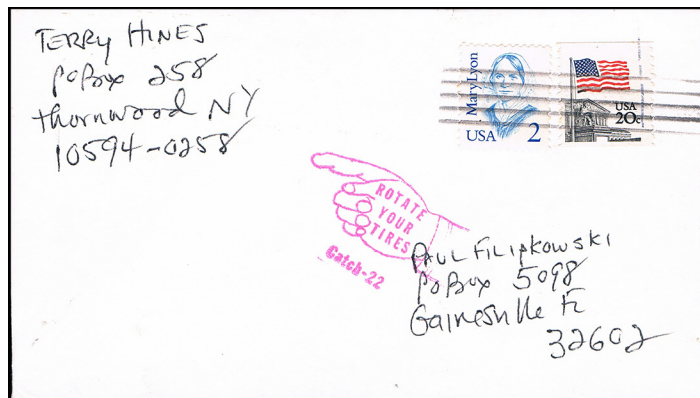 TERRY HINES
PO Box 258
Thornwood NY
10594-0258
Mary Lyon
USA 2
USA
20c
ROTATE
YOUR
TIRES
Catch-22
PAUL FILIPKOWSKI
PO Box 5098
Gainesville FL
32602